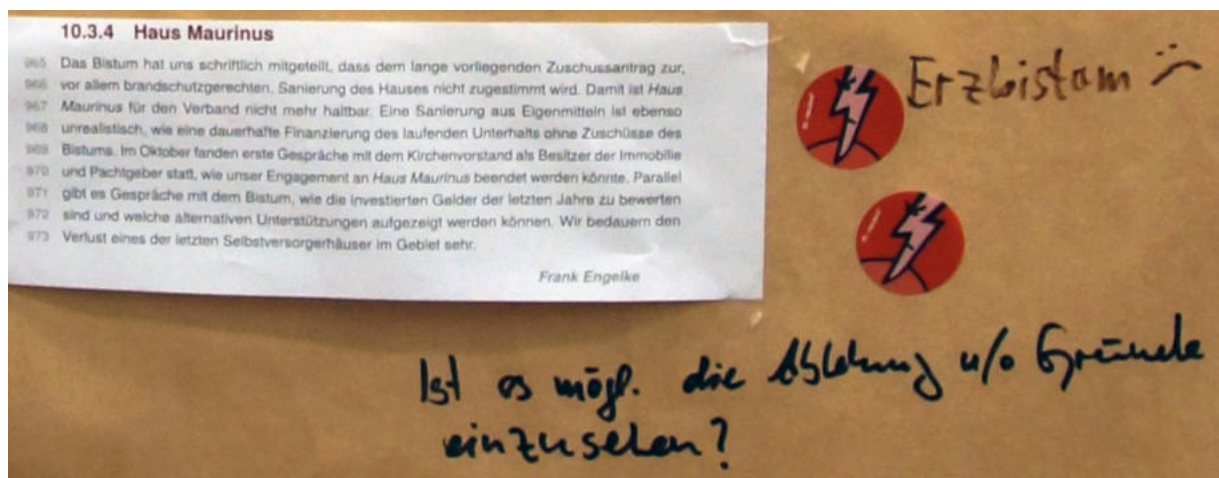 10.3.4 Haus Maurinus
965 Das Bistum hat uns schriftlich mitgeteilt, dass dem lange vorliegenden Zuschussantrag zur,
966 vor allem brandschutzgerechten, Sanierung des Hauses nicht zugestimmt wird. Damit ist Haus
967 Maurinus für den Verband nicht mehr haltbar. Eine Sanierung aus Eigenmitteln ist ebenso
968 unrealistisch, wie eine dauerhafte Finanzierung des laufenden Unterhalts ohne Zuschüsse des
969 Bistums. Im Oktober fanden erste Gespräche mit dem Kirchenvorstand als Besitzer der Immobilie
970 und Pachtgeber statt, wie unser Engagement an Haus Maurinus beendet werden könnte. Parallel
971 gibt es Gespräche mit dem Bistum, wie die investierten Gelder der letzten Jahre zu bewerten
972 sind und welche alternativen Unterstützungen aufgezeigt werden können. Wir bedauern den
973 Verlust eines der letzten Selbstversorgerhäuser im Gebiet sehr.
Frank Engelke
Erzbistum :(
Ist es mögl. die Ablehnung u/o Gründe
einzusehen?